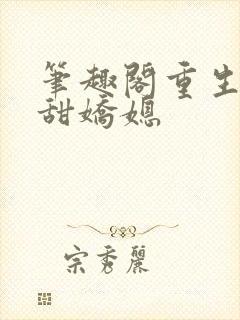 筆趣閣重生
甜嬌媳
宗秀麗